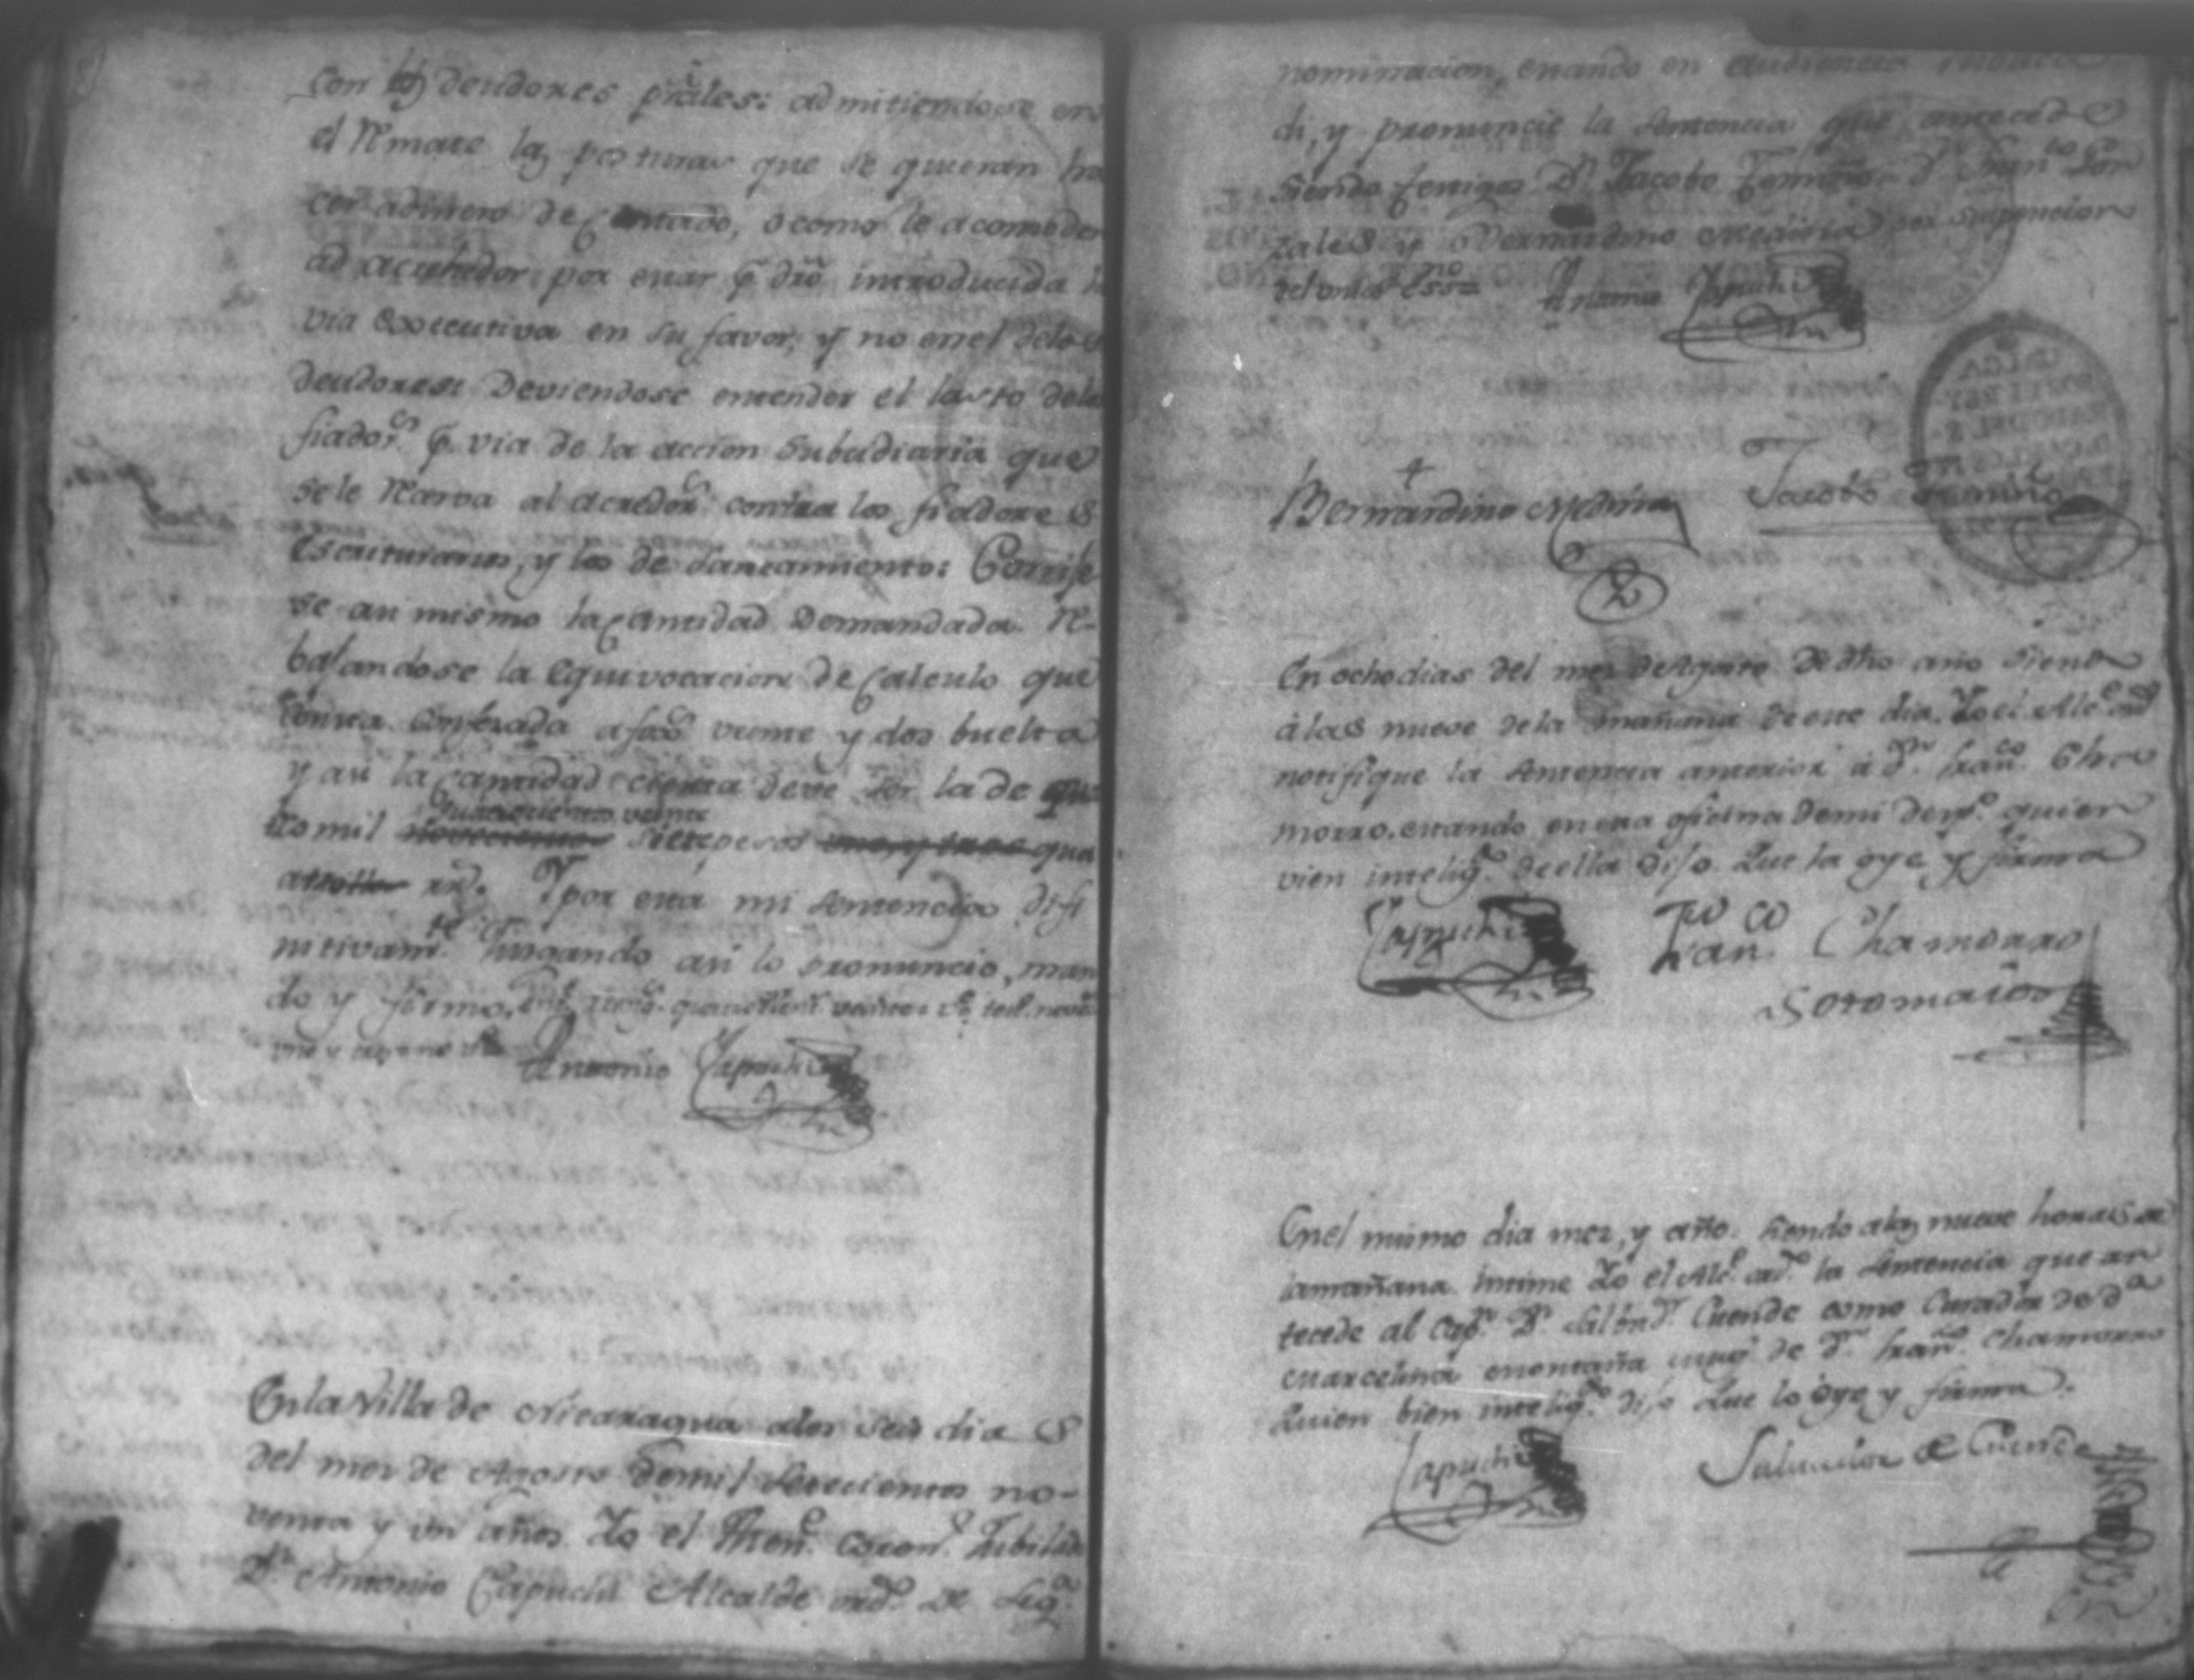 con los deudores prâles: admitiendose en
el Rmate las posturas que se quieran ha
cer adinero de contado, ò como le acomoden
ad acrehedor por estar p dro introducida la
via executiva en su favor, y no en el de los
deudores: Deviendose entender el lasto de los
fiador.s p. via de la accion subsidiaria que
se le Rserva al acredor contra los fiadores
escriturarios, y los de saneamiento: Corrija
se asi mismo la cantidad Demandada. R-
bajandose la equivocacion de Calculo que
consta confesada a fas veinte y dos buelta
y asi la cantidad cierta deve ser la de qua
tro mil novecientos quatrocientos veinte siete pesos qua
rr.s Y por esta mi sentencia difi
nitivam.te jusgando asi lo pronuncio, man
do y firmo.
Antonio Capuchi
En la Villa de Nicaragua alos seis dias
del mes de Agosto de mil setecientos no-
venta y un años. Yo el Then.e Coron.l Jubilado
D.n Antonio Capuchi Alcalde ord.o de seg.a
nominacion, estando en audiencia publica
di, y pronuncie la sentencia que antecede
siendo testigos D.n Jacobo Temiño D.n Fran.co Gon
zales y Bernardino Medina por suspencion
del unico Ess.no= Antonio Capuchi
Bernardino Medina
Jacobo Temiño
En ocho dias del mes de Agosto de dho año siendo
à las nueve de la mañana de este dia. Yo el Alc.e ord.o
notifique la sentencia anterior à d.n Fran.co Cha
morro. estando en esta oficina de mi desp.o quien
vien intelig.do de ella dijo. Que la oye y firma
Capuchi
Fran.co Chamorro
Sotomaior
En el mismo dia mes, y año. siendo alas nueve horas de
la mañana intime Yo el Alc.e ord.o la sentencia que an
tecede al Cap.n D.n Salvad.r Cuende como Curador de d.a
Marcelina Montaña muger de d.n Fran.co Chamorro
Quien bien intelig.do dijo Que lo oye y firma.
Capuchi
Salvador de Cuende